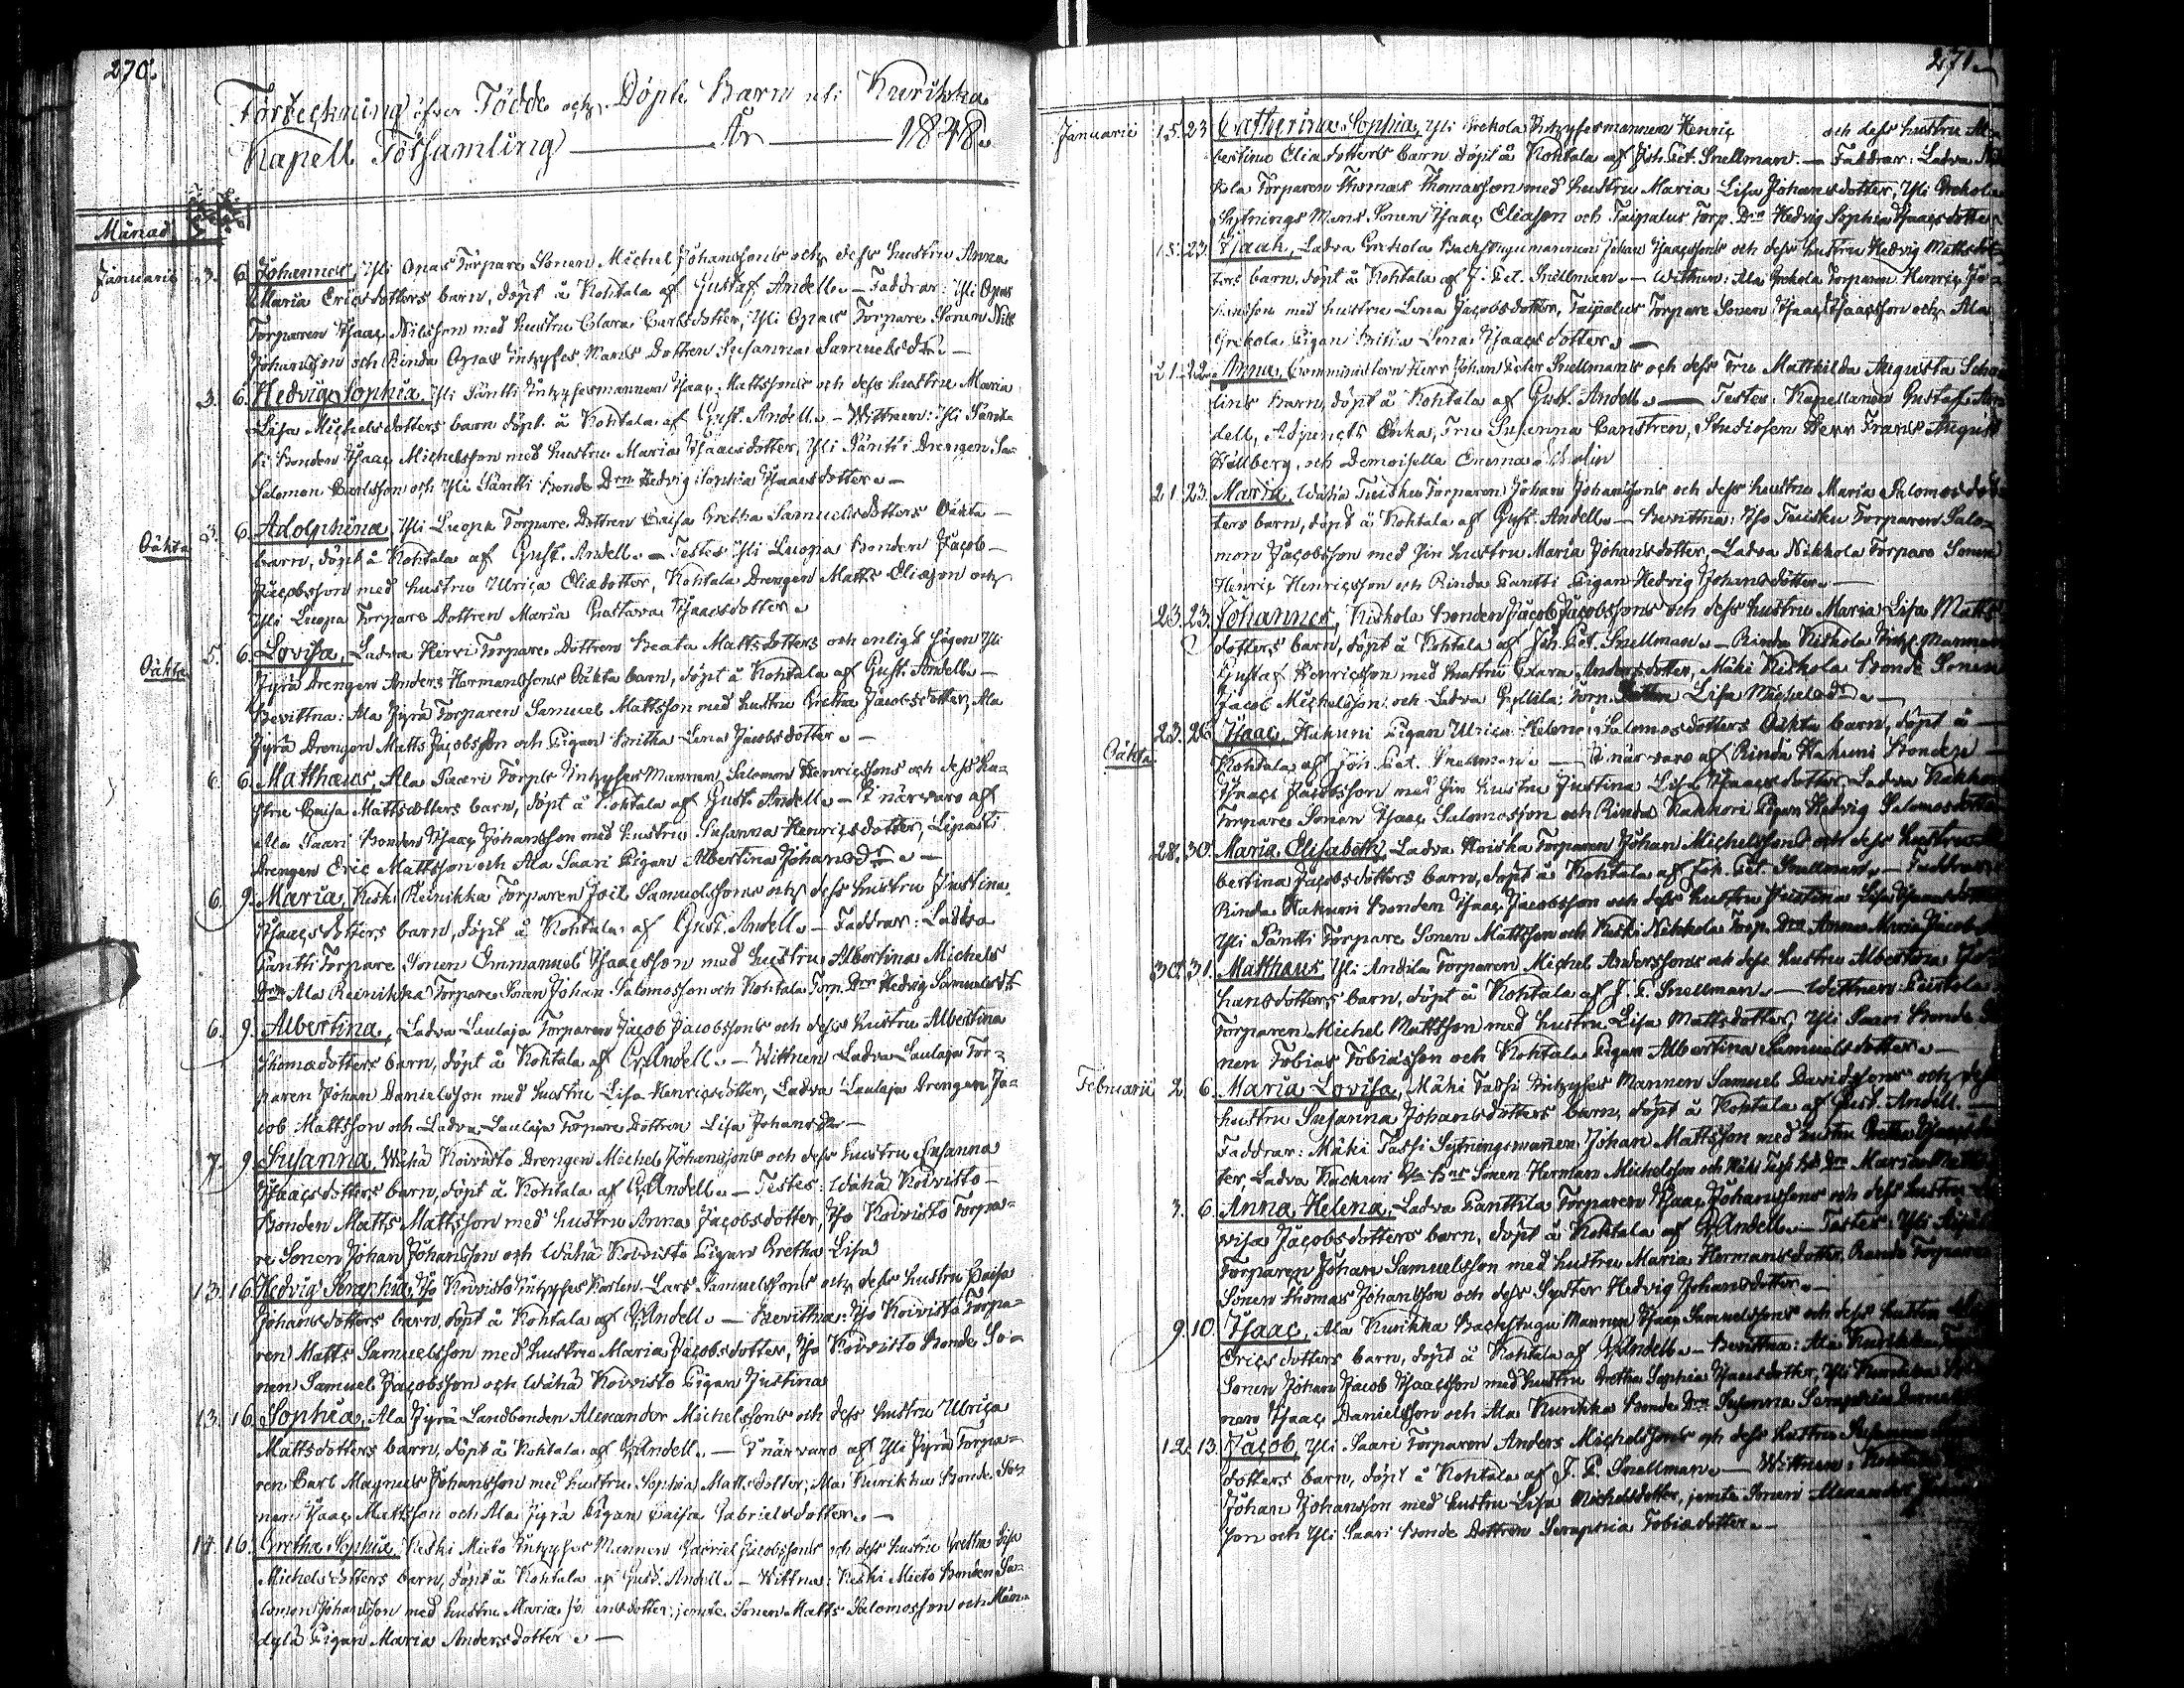 270.
Förteckning öfver Födde och Döpte Barn uti Kurikka
Kapell Församling År 1848.
Månad
Januarii 3. 6. Johannes, Yli Opas Torpare Sonen Michel Johanssons och dess hustru Anna
Maria Ericsdotters barn, döpt å Kohtala af Gustaf Andell. — Faddrar: Yli Opas
Torparen Isaac Nilsson med hustru Clara Carlsdotter, Yli Opas Torpare Sonen Nils
Johansson och Rinda Opas Inhyses Mans Dottren Susanna Samuelsdr. —
3. 6. Hedvig Sophia, Yli Säntti Inhysesmannen Isaac Mattssons och dess hustru Maria
Lisa Michelsdotters barn döpt å Kohtala af Gust. Andell. — Wittnen: Yli Sänt-
ti Bonden Isaac Michelsson med hustru Maria Isaacsdotter, Yli Säntti Drengen Sa-
Salomon Carlsson och Yli Säntti Bonde Drn Hedvig Sophia Isaacsdotter. —
Oäkta 3. 6. Adolphina, Yli Luopa Torpare Dottren Caisa Gretha Samuelsdotters Oäkta —
barn, döpt å Kohtala af Gust. Andell. — Testes: Yli Luopa Bonden Jacob —
Jacobsson med hustru Ulrica Eliædotter, Kohtala Drengen Matts Eliasson och
Yli Luopa Torpare Dottren Maria Gustava Isaacsdotter.
Oäkta 5. 6. Lovisa, Ladva Hirvi Torpare Dottren Beata Mattsdotters och enligt sägen Yli
Jyrä Drengen Anders Hermanssons Oäkta barn, döpt å Kohtala af Gust. Andell. —
Bevittna: Ala Jyrä Torparen Samuel Mattsson med hustru Gretha Jacobsdotter, Ala
Jyrä Drengen Matts Jacobsson och Pigan Britha Lena Jacobsdotter. —
6. 6. Matthæus, Ala Saari Torpls Inhyses Mannen Salomon Henricssons och dess hu-
stru Caisa Mattsdotters barn, döpt å Kohtala af Gust. Andell. — I närvaro af
Ala Saari Bonden Isaac Johansson med hustru Susanna Henricsdotter,
Drengen Eric Mattsson och Ala Saari Pigan Albertina Johansdr. —
6. 9. Maria, Keski Reinikka Torparen Joel Samuelssons och dess hustru Justina
Isaacsdotters barn, döpt å Kohtala af Gust. Andell. — Faddrar: Ladva
Pantti Torpare Sonen Emmanuel Isaacsson med hustru Albertina Michels
Drn, Ala Reinikka Torpare Sonen Johan Salomosson och Kohtala Torp. Drn Hedvig Samuelsdr
6. 9. Albertina, Ladva Laulaja Torparen Jacob Jacobssons och dess hustru Albertina
Thomædotters barn, döpt å Kohtala af G. Andell. — Wittnen Ladva Laulaja Tor-
paren Johan Danielsson med hustru Lisa Henricsdotter, Ladva Laulaja Drengen Ja-
cob Mattsson och Ladva Laulaja Torpare Dottren Lisa Johansdr —
7. 9. Susanna, Wähä Koivisto Drengen Michel Johanssons och dess hustru Susanna
Isaacsdotters barn, döpt å Kohtala af G. Andell. — Testes: Wähä Koivisto —
Bonden Matts Mattsson med hustru Anna Jacobsdotter, Iso Koivisto Torpa-
re Sonen Johan Johansson och Wähä Koivisto Pigan Gretha Lisa
13. 16. Hedvig Seraphia, Iso Koivisto Inhyses Karlen Lars Samuelssons och dess hustru Caisa
Johansdotters barn, döpt å Kohtala af G. Andell. — Bevittna: Iso Koivisto Torpa-
ren Matts Samuelsson med hustru Maria Jacobsdotter, Iso Koivisto Bonde So-
nen Samuel Jacobsson och Wähä Koivisto Pigan Justina
13. 16. Sophia, Ala Jyrä Landbonden Alexander Michelssons och dess hustru Ulrica
Mattsdotters barn, döpt å Kohtala af G. Andell. — I närvaro af Yli Jyrä Torpa-
ren Carl Magnus Johansson med hustru Sophia Mattsdotter, Ala Kurikka Bonde So-
nen Isaac Mattsson och Ala Jyrä Pigan Caisa Gabrielsdotter. —
14. 16. Gretha Sophia, Keski Mieto Inhyses Mannen Gabriel Jacobssons och dess hustru Gretha Lisa
Michelsdotters barn, döpt å Kohtala af Gust. Andell. — Wittna: Keski Mieto Bonden Sa-
lomon Johansson med hustru Maria Johansdotter, jemte Sonen Matts Salomosson och Män-
dylä Pigan Maria Andersdotter. —
271.
Januarii 15. 23. Catharina Sophia, Yli Grekola Inhysesmannen Henric och dess hustru Al-
bertina Eliædotters barn döpt å Kohtala af Joh. Pet. Snellman. — Faddrar: Ladva
kola Torparen Thomas Thomasson med hustru Maria Lisa Johansdotter, Yli Grekola
Sytnings Mans Sonen Isaac Eliasson och Taipalus Torp. Drn Hedvig Sophia Isaacsdotter
15. 23. Isaak, Ladva Grekola Backstugumannen Johan Isaacssons och dess hustru Hedvig Mattsdot-
ters barn, döpt å Kohtala af J. Pet. Snellman. — Wittnen: Ala Grekola Torparen Henric Jo-
hansson med hustru Lena Jacobsdotter, Taipalus Torpare Sonen Isaac Isaacsson och Ala
Grekola Pigan Britha Lena Isaacsdotter. —
21. 22. Anna, Comministern Herr Johan Peter Snellmans och dess Fru Mathilda Augusta Scho-
lins Barn, döpt å Kohtala af Gust. Andell. — Testes: Kapellanen Gustaf An-
dell, Adjuncts Enka, Fru Susanna Castren, Studiosen Herr Frans August
Hällberg, och Demoiselle Emma Scholin
21. 23. Maria, Wähä Tuisku Torparen Johan Johanssons och dess hustru Maria Salomosdot-
ters barn, döpt å Kohtala af Gust. Andell. — Bevittna: Iso Tuisku Torparen Salo-
mon Jacobsson med sin hustru Maria Johansdotter, Ladva Nikkola Torpare Sonen
Henric Henricsson och Rinda Pantti Pigan Hedvig Johansdotter. —
23. 23. Johannes, Kiskola Bonden Jacob Jacobssons och dess hustru Maria Lisa Matts
dotters barn, döpt å Kohtala af Joh. Pet. Snellman. — Rinda Kiskola Inh. Mannen
Gustaf Henricsson med hustru Clara Andersdotter, Mäki Kiskola Bonde Sonen
Jacob Michelsson och Ladva Torp. Lisa Michelsdr. —
Oäkta 23. 26. Isaac, Hakuni Pigan Ulrica Helena Salomosdotters Oäkta barn, döpt å —
Kohtala af Joh. Pet. Snellman. — I närvaro af Rinda Hakuni Bonden —
Isaac Jacobsson med sin hustru Justina Lisa Isaacsdotter, Ladva
Torpare Sonen Isaac Salomosson och Rinda Pigan Hedvig Salomosdotter
28. 30. Maria Elisabeth, Ladva Torparen Johan Michelssons och dess hustru Al-
bertina Jacobsdotters barn, döpt å Kohtala af Joh. Pet. Snellman. — Faddrar:
Rinda Hakuni Bonden Isaac Jacobsson och dess hustru Justina Lisa Isaacsdotter
Yli Säntti Torpare Sonen Mattsson och Keski Nikkola Torp. Drn Anna Maria Jacobs
30. 31. Matthæus, Yli Andila Torparen Michel Anderssons och dess hustru Albertina Jo-
hansdotters barn, döpt å Kohtala af J. P. Snellman. — Wittnen:
Torparen Michel Mattsson med hustru Lisa Mattsdotter, Yli Saari Bonde So-
nen Tobias Tobiasson och Kohtala Pigan Albertina Samuelsdotter. —
Februarii 2. 6. Maria Lovisa, Mäki Passi Inhyses Mannen Samuel Davidssons och dess
hustru Susanna Johansdotters barn, döpt å Kohtala af Gust. Andell. —
Faddrar: Mäki Passi Sytningsmannen Johan Mattsson med hustru Gretha
ter, Ladva Sonen Herman Michelsson och Mäki Passi Drn Maria
3. 6. Anna Helena, Ladva Panttila Torparen Isaac Johanssons och dess hustru Lo-
visa Jacobsdotters barn, döpt å Kohtala af G. Andell. — Testes: Yli
Torparen Johan Samuelsson med hustru Maria Hermansdotter, Torpare
Sonen Thomas Johansson och dess Syster Hedvig Johansdotter. —
9. 10. Isaac, Ala Kurikka Backstugu Mannen Isaac Samuelssons och dess hustru
Ericsdotters barn, döpt å Kohtala af G. Andell. — Bevittna: Ala Kurikka
Sonen Johan Jacob Isaacsson med hustru Gretha Sophia Isaacsdotter, Yli Kurikka
nen Isaac Danielsson och Ala Kurikka Bonde Drn Susanna Seraphia
12. 13. Jacob, Yli Saari Torparen Anders Michelssons och dess hustru Susanna
dotters barn, döpt å Kohtala af J. P. Snellman. — Wittnen: Kohtala
Johan Johansson med hustru Lisa Michelsdotter, jemte Sonen Alexander
son och Yli Saari Bonde Dottren Seraphia Tobiædotter. —